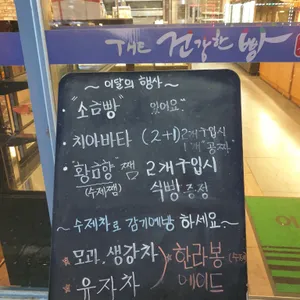 THE 건강한 빵
~ 이달의 행사 ~
· "소금빵" 있어요.
· 치아바타 (2+1) 2개 구입시 1개 "공짜"
· "황금향" 쨈 2개 구입시
(수제쨈) 식빵 증정
~ 수제차로 감기예방 하세요 ~
모과, 생강차 한라봉 (수제)
유자차 에이드